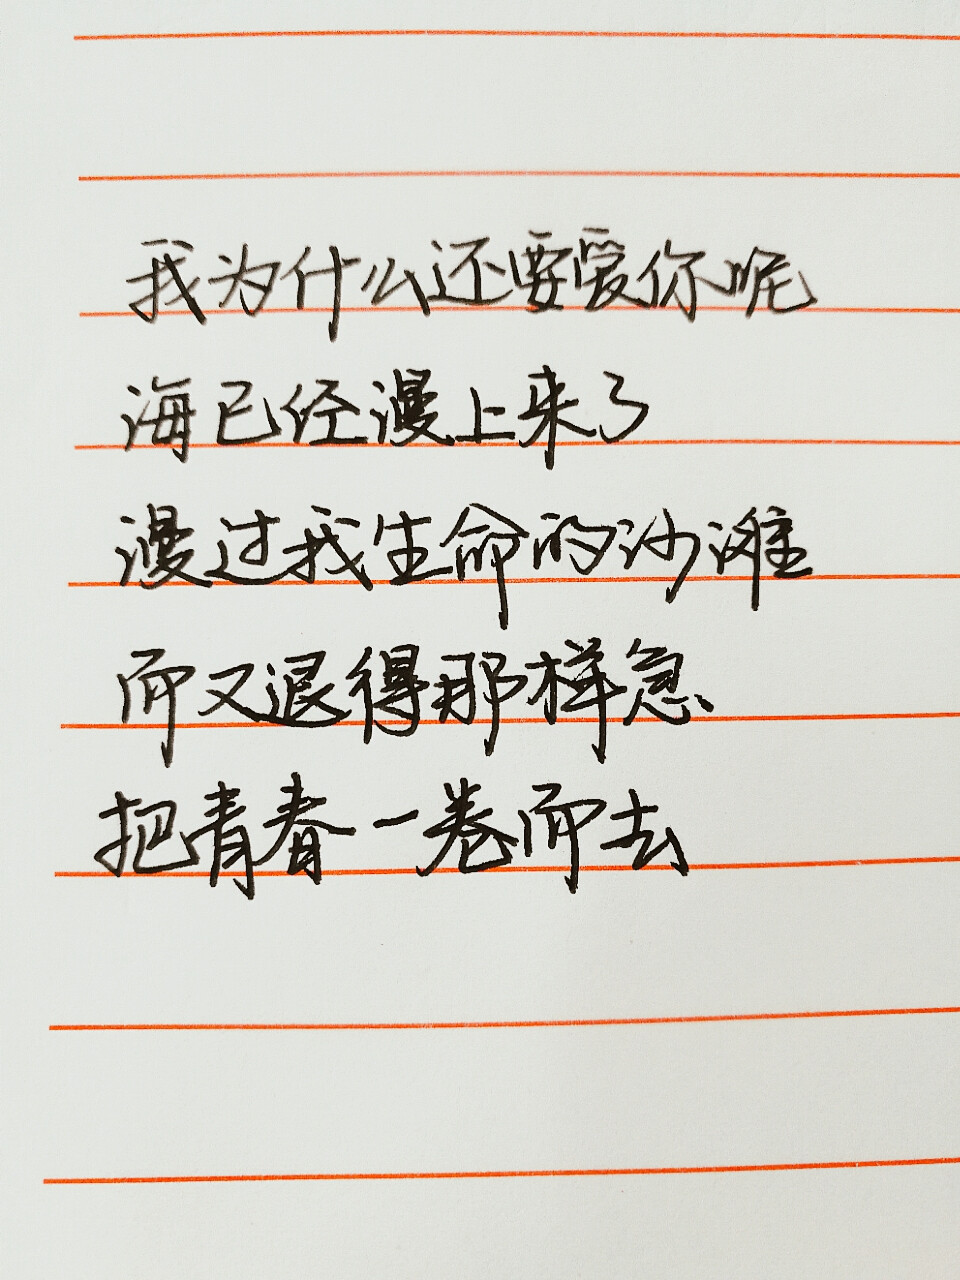 我为什么还要爱你呢
海已经漫上来了
漫过我生命的沙滩
而又退得那样急
把青春一卷而去